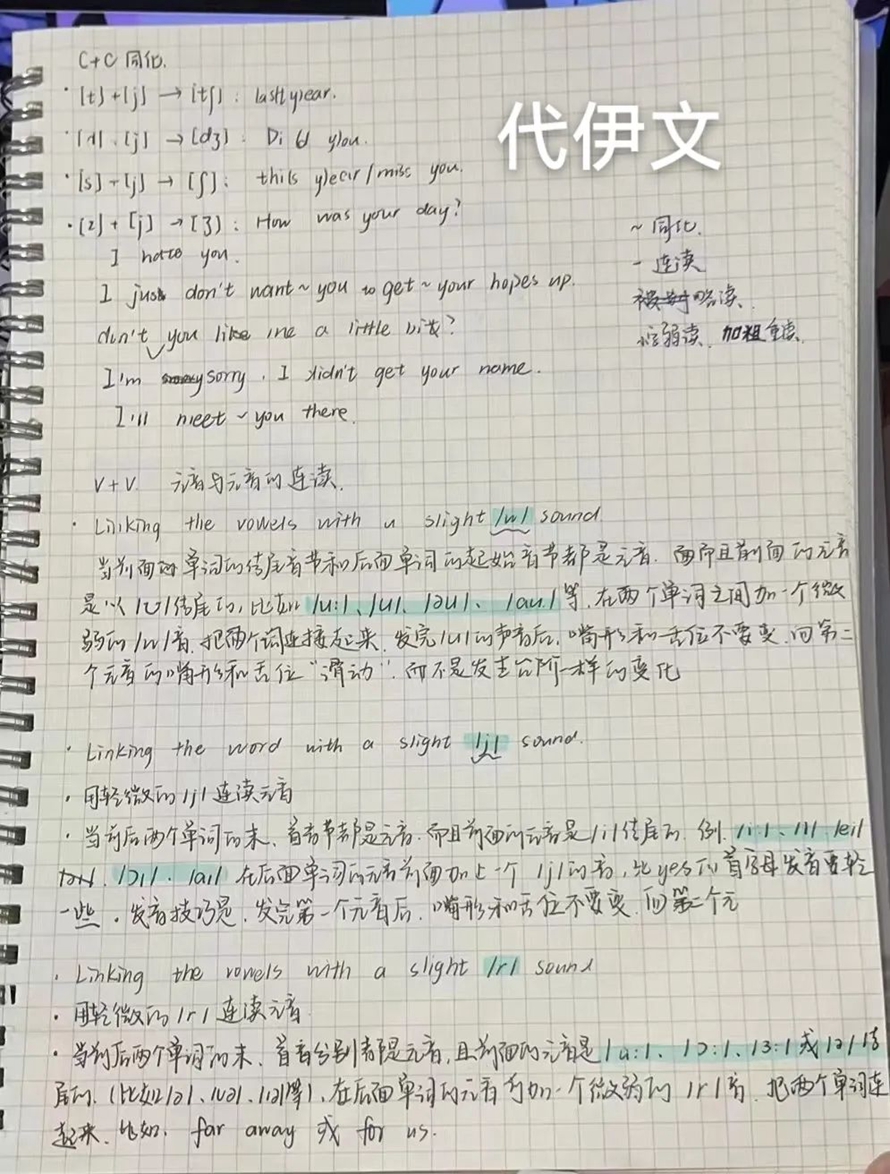 C+C 同化.
· [t]+[j] → [tʃ]: last year.
[d]+[j] → [dʒ]: Did you.
· [s]+[j] → [ʃ]: this year/miss you.
· [z]+[j] → [ʒ]: How was your day?
代伊文
I hate you.
I just don't want ~ you to get ~ your hopes up.
don't you like me a little bit?
I'm sorry. I didn't get your name.
I'll meet ~ you there.
~ 同化.
- 连读
略读.
弱读. 加粗重读.
V+V. 元音与元音的连读.
· Linking the vowels with a slight /w/ sound
当前面的单词的结尾音节和后面单词的起始音节都是元音. 而且前面的元音
是以/u/结尾的, 比如 /u:/、/u/、/əu/、/au/等, 在两个单词之间加一个微
弱的/w/音. 把两个词连接起来. 发完/u/的声音后, 嘴形和舌位不要变. 向第二
个元音的嘴形和舌位“滑动”. 而不是发生台阶一样的变化
· Linking the word with a slight /j/ sound.
· 用轻微的/j/连读元音
· 当前后两个单词的末、首音节都是元音. 而且前面的元音是/i/结尾的. 例. /i:/、/i/ /ei/
/ɔi/. /ai/ 在后面单词的元音前面加上一个 /j/的音, 比yes的首字母发音要轻
一些. 发音技巧是. 发完第一个元音后. 嘴形和舌位不要变. 向第二个元
· Linking the vowels with a slight /r/ sound
· 用轻微的/r/连读元音.
· 当前后两个单词的末、首音分别都是元音, 且前面的元音是/a:/、/ɔ:/、/ɜ:/或/ə/结
尾的. (比如/ə/、/uə/、/iə/等). 在后面单词的元音前加一个微弱的 /r/音. 把两个单词连
起来. 比如. far away 或 for us.